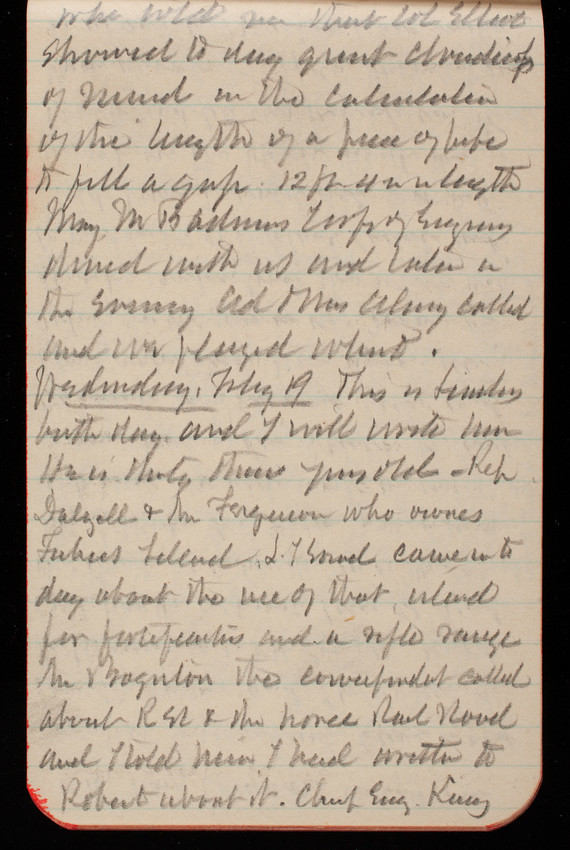 who told me that Col Elliot
showed to day great cloudiness
of mind in the calculation
of the length of a piece of pipe
to fill a gap. 12 ft 4 in length
May M B Adams Corps of Engrs
dined with us and later in
the Evening Ad & Mrs called
and we played whist.
Wednesday, Feby 19 This is
birth day and I will write him
He is thirty three years old - Rep
Dalzell & Mr Ferguson who owns
Fishers Island, L.I Sound came in to
day about the use of that island
for fortifications and a rifle range
Mr Boynton the correspondent called
about R St & the Rail Road
and I told him I had written to
Robert about it. Chief Eng. King